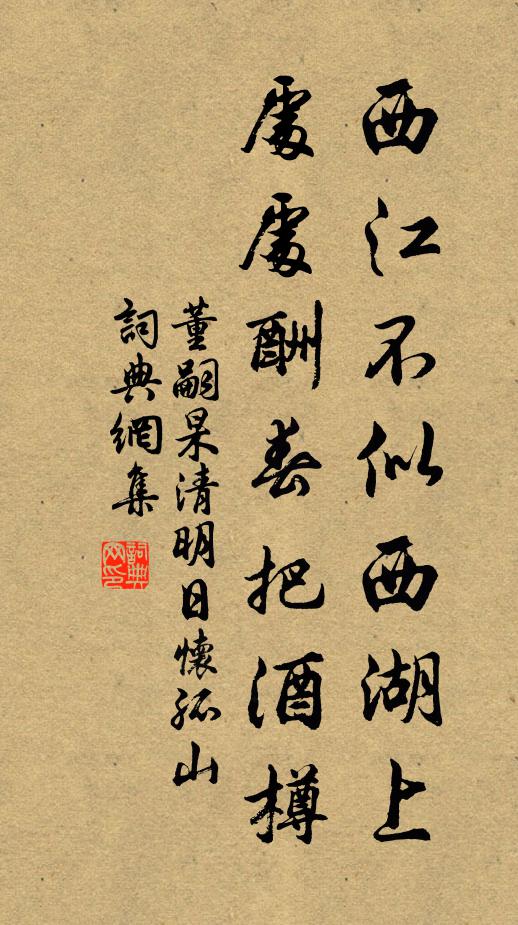 西江不似西湖上
處處酬春把酒樽
董嗣杲清明日懷孤山
詞典網集
詞典
网印